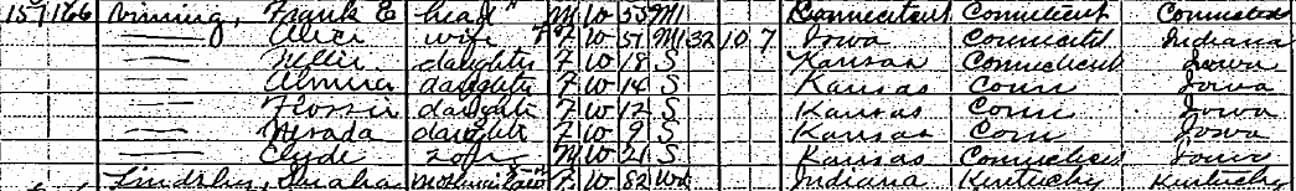 157 166 Vinning, Frank E head M W 55 M1 Connecticut Connecticut Connecticut
— Alice wife F W 51 M1 32 10 7 Iowa Connecticut Indiana
— Nellie daughter F W 18 S Kansas Connecticut Iowa
— Almira daughter F W 14 S Kansas Conn Iowa
— Flossie daughter F W 12 S Kansas Conn Iowa
— Nevada daughter F W 9 S Kansas Conn Iowa
— Clyde son M W 21 S Kansas Connecticut Iowa
Lindsley, Sarah mother in law F W 82 Wd Indiana Kentucky Kentucky